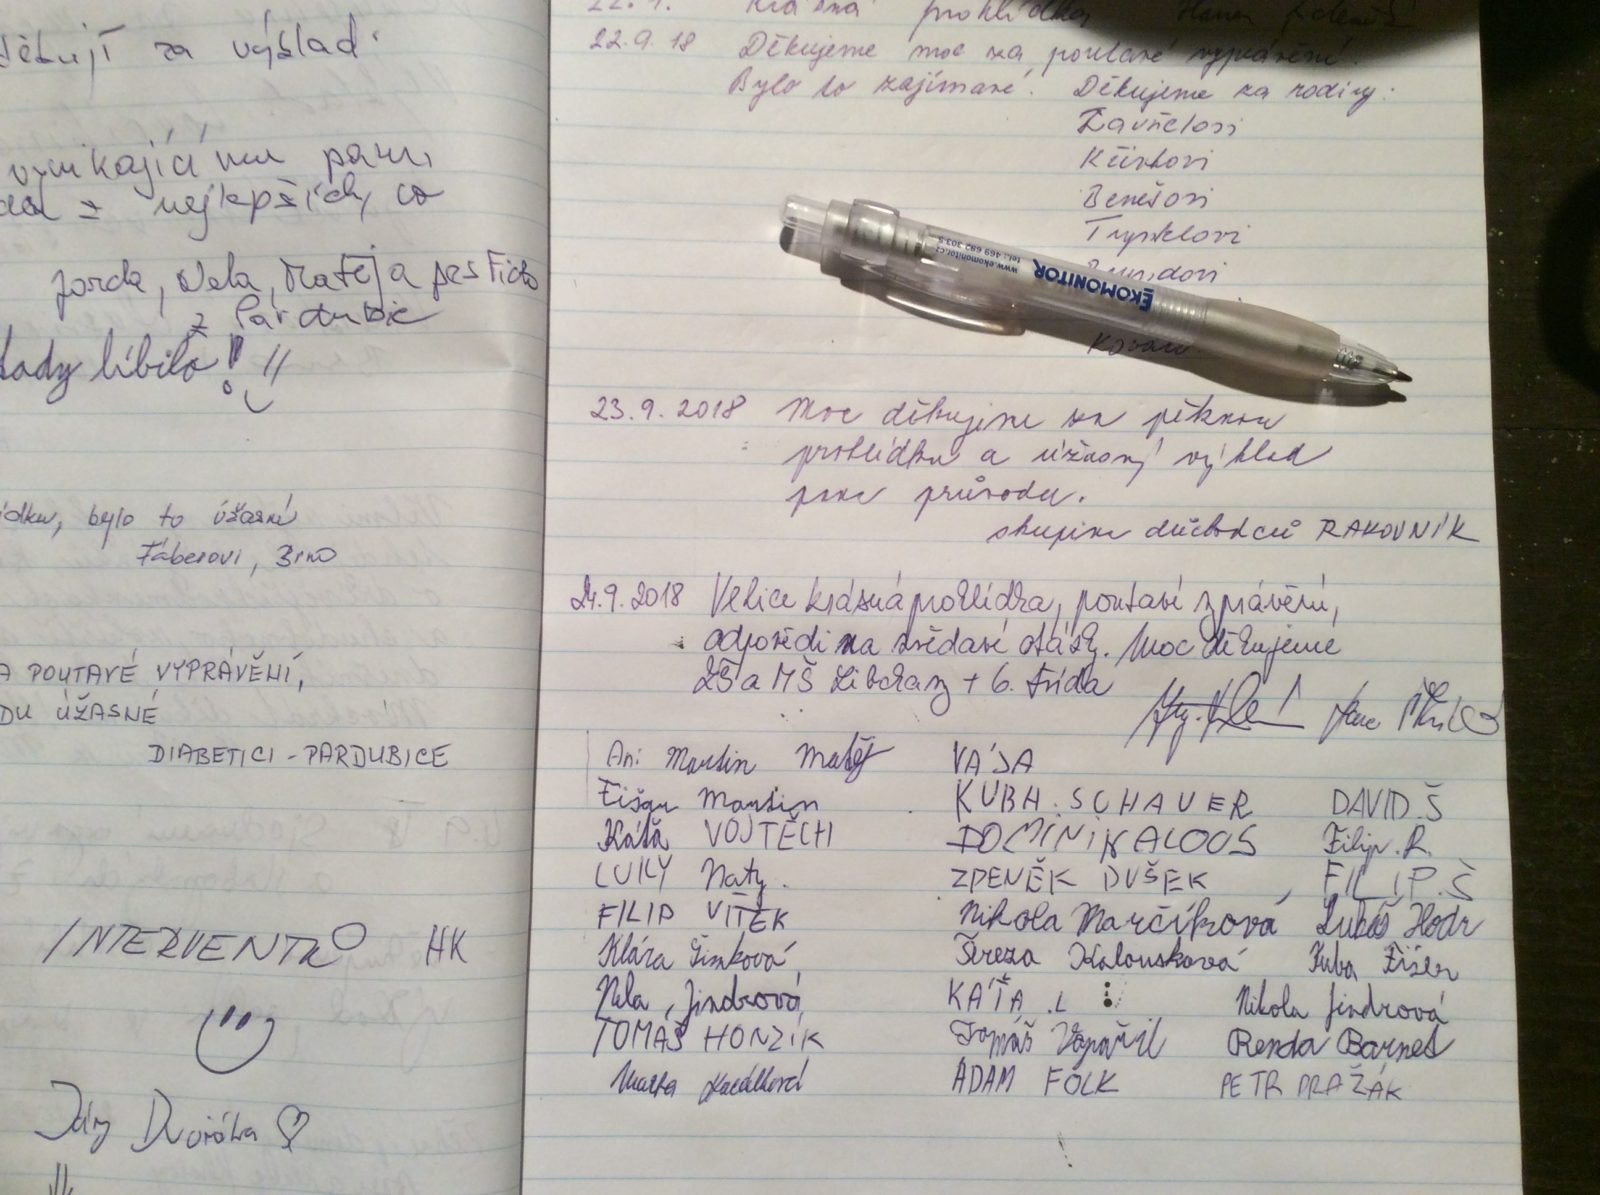 za výklad.
vynikajícímu panu
z nejlepších, co
Jarda, Nela, Matěj a
z Pardubic
líbilo!!
bylo to úžasné
Fáberovi, Brno
A POUTAVÉ VYPRÁVĚNÍ,
DU ÚŽASNÉ
DIABETICI - PARDUBICE
INTERVENTRO HK
Járy Dvořáka
Krásná prohlídka Hana
22.9.18 Děkujeme moc za poutavé vyprávění!
Bylo to zajímavé! Děkujeme za rodiny:
Zavřelovi
Benešovi
www.ekomonitor.cz
tel.: 469 682 303-5
EKOMONITOR
23.9.2018 Moc děkujeme za pěknou
prohlídku a úžasný výklad
pana průvodce.
skupina důchodců RAKOVNÍK
24.9.2018 Velice krásná prohlídka, poutavé zprávění,
odpovědi na zvědavé otázky. Moc děkujeme
ZŠ a MŠ Libčany + 6. třída
An: Martin Matěj VÁJA
Martin KUBA.SCHAUER DAVID.Š
Káťa VOJTĚCH DOMINIK ALOUS Filip.R.
LUKY Naty. ZDENĚK DUŠEK, FILIP.Š
FILIP VÍTEK Nikola Marčíková Lukáš Hodr
Klára Šimková Tereza Kalousková Kuba Fišer
Nela Jindrová KÁŤA.L Nikola Jindrová
TOMÁŠ HONZÍK Tomáš Vopařil Renda Barnet
ADAM FOLK PETR PRAŽÁK